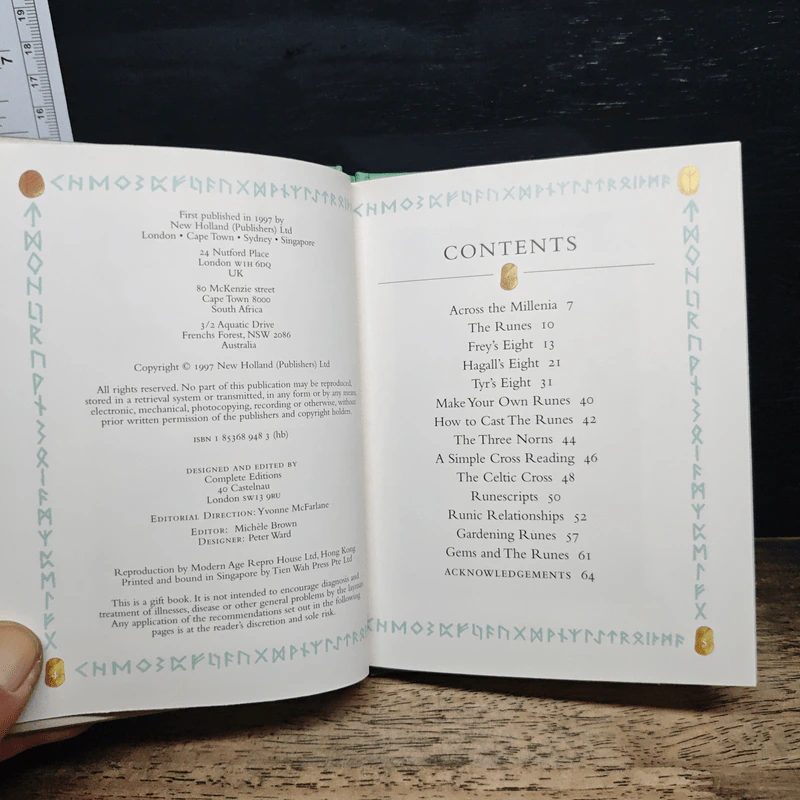 First published in 1997 by
New Holland (Publishers) Ltd
London • Cape Town • Sydney • Singapore
24 Nutford Place
London W1H 6DQ
UK
80 McKenzie street
Cape Town 8000
South Africa
3/2 Aquatic Drive
Frenchs Forest, NSW 2086
Australia
Copyright © 1997 New Holland (Publishers) Ltd
All rights reserved. No part of this publication may be reproduced,
stored in a retrieval system or transmitted, in any form or by any means,
electronic, mechanical, photocopying, recording or otherwise, without
prior written permission of the publishers and copyright holders.
ISBN 1 85368 948 3 (hb)
DESIGNED AND EDITED BY
Complete Editions
40 Castelnau
London SW13 9RU
EDITORIAL DIRECTION: Yvonne McFarlane
EDITOR: Michèle Brown
DESIGNER: Peter Ward
Reproduction by Modern Age Repro House Ltd, Hong Kong
Printed and bound in Singapore by Tien Wah Press Pte Ltd
This is a gift book. It is not intended to encourage diagnosis and
treatment of illnesses, disease or other general problems by the layman.
Any application of the recommendations set out in the following
pages is at the reader's discretion and sole risk.
4
CONTENTS
Across the Millenia 7
The Runes 10
Frey's Eight 13
Hagall's Eight 21
Tyr's Eight 31
Make Your Own Runes 40
How to Cast The Runes 42
The Three Norns 44
A Simple Cross Reading 46
The Celtic Cross 48
Runescripts 50
Runic Relationships 52
Gardening Runes 57
Gems and The Runes 61
ACKNOWLEDGEMENTS 64
5
7
19
18
17
16